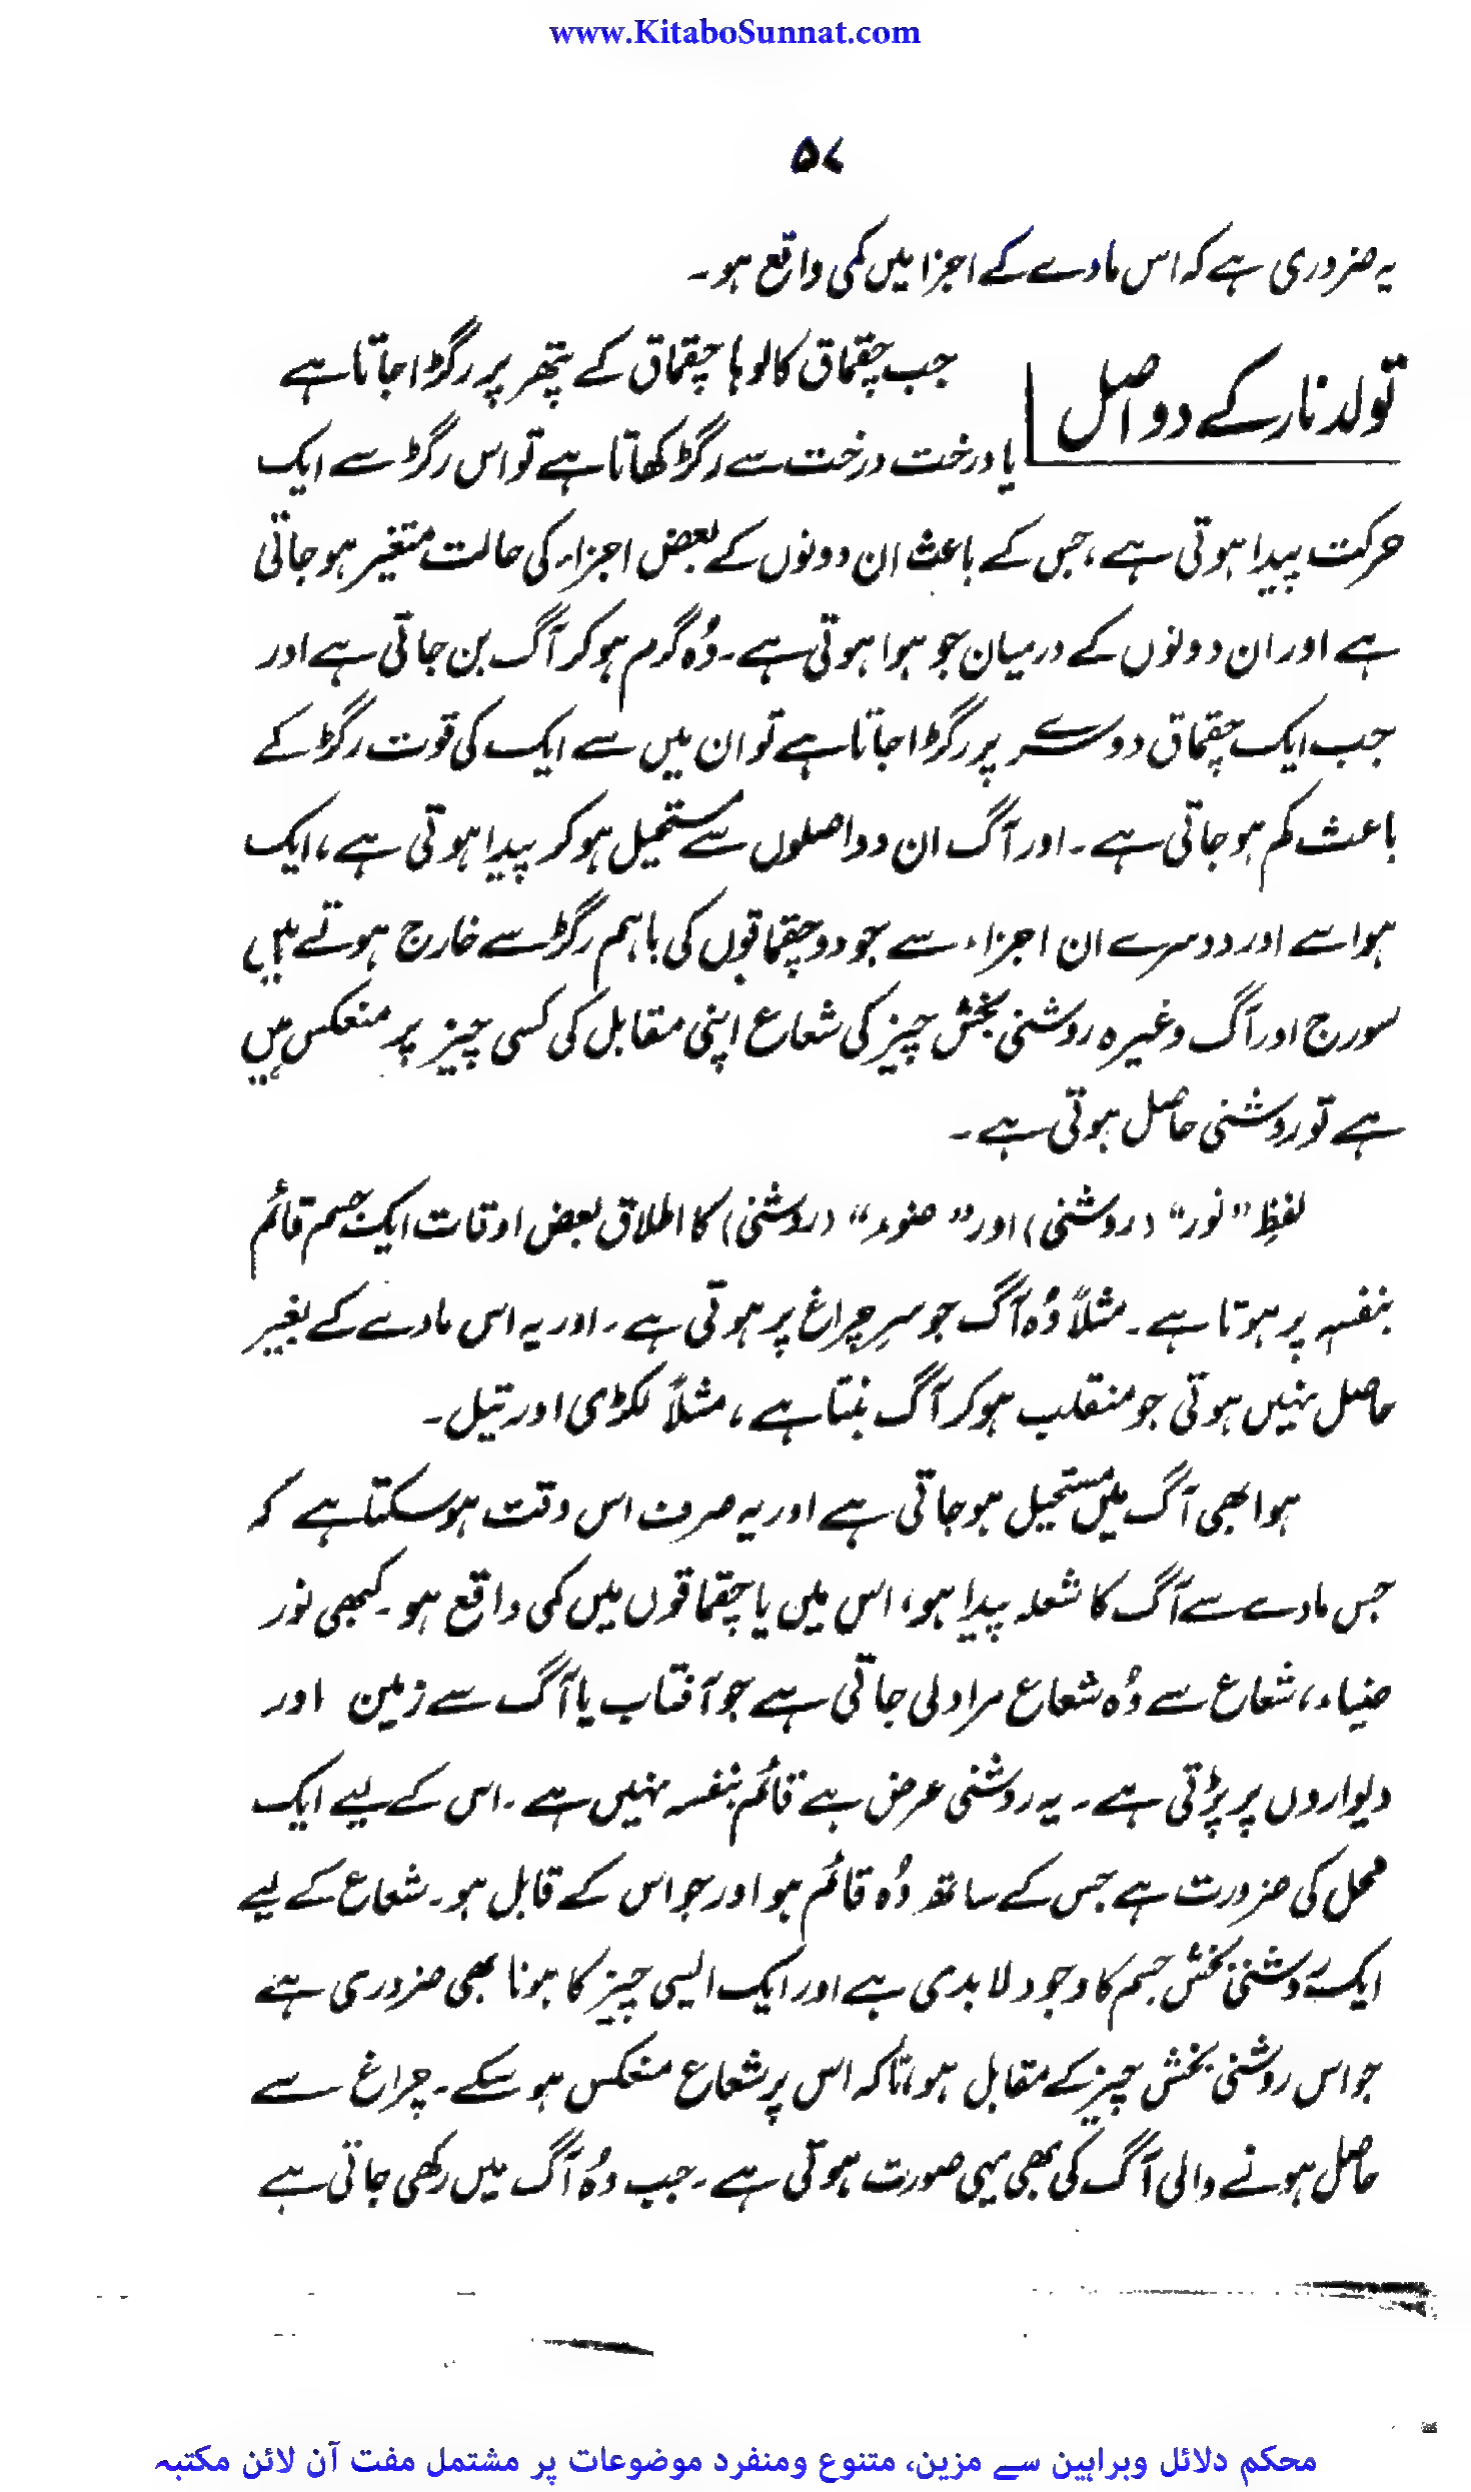 www.KitaboSunnat.com
۵۷
یہ ضروری ہے کہ اس مادے کے اجزا میں کمی واقع ہو۔
تولد نار کے دو اصل
جب چقماق کا لوہا چقماق کے پتھر پر رگڑا جاتا ہے
یا درخت درخت سے رگڑ کھاتا ہے تو اس رگڑ سے ایک
حرکت پیدا ہوتی ہے، جس کے باعث ان دونوں کے بعض اجزاء کی حالت متغیر ہو جاتی
ہے اور ان دونوں کے درمیان جو ہوا ہوتی ہے۔ وُہ گرم ہو کر آگ بن جاتی ہے اور
جب ایک چقماق دوسرے پر رگڑا جاتا ہے تو ان میں سے ایک کی قوت رگڑ کے
باعث کم ہو جاتی ہے۔ اور آگ ان دو اصلوں سے مستحیل ہو کر پیدا ہوتی ہے، ایک
ہوا سے اور دوسرے ان اجزاء سے جو دو چقماقوں کی باہم رگڑ سے خارج ہوتے ہیں
سورج اور آگ وغیرہ روشنی بخش چیز کی شعاع اپنی مقابل کی کسی چیز پر منعکس ہیں
ہے تو روشنی حاصل ہوتی ہے۔
لفظِ "نور" (روشنی) اور "ضوء" (روشنی) کا اطلاق بعض اوقات ایک جسم قائم
بنفسہٖ پر ہوتا ہے۔ مثلاً وُہ آگ جو سرِ چراغ پر ہوتی ہے۔ اور یہ اس مادے کے بغیر
حاصل نہیں ہوتی جو منقلب ہو کر آگ بنتا ہے، مثلاً لکڑی اور تیل۔
ہوا بھی آگ میں مستحیل ہو جاتی ہے اور یہ صرف اس وقت ہو سکتا ہے کہ
جس مادے سے آگ کا شعلہ پیدا ہو، اس میں یا چقماقوں میں کمی واقع ہو۔ کبھی نور
ضیاء، شعاع سے وُہ شعاع مراد لی جاتی ہے جو آفتاب یا آگ سے زمین اور
دیواروں پر پڑتی ہے۔ یہ روشنی عرض ہے قائم بنفسہ نہیں ہے۔ اس کے لیے ایک
محل کی ضرورت ہے جس کے ساتھ وُہ قائم ہو اور جو اس کے قابل ہو۔ شعاع کے لیے
ایک روشنی بخش جسم کا وجود لابدی ہے اور ایک ایسی چیز کا ہونا بھی ضروری ہے
جو اس روشنی بخش چیز کے مقابل ہو، تاکہ اس پر شعاع منعکس ہو سکے۔ چراغ سے
حاصل ہونے والی آگ کی بھی یہی صورت ہوتی ہے۔ جب وُہ آگ میں رکھی جاتی ہے
محکم دلائل وبراہین سے مزین، متنوع ومنفرد موضوعات پر مشتمل مفت آن لائن مکتبہ